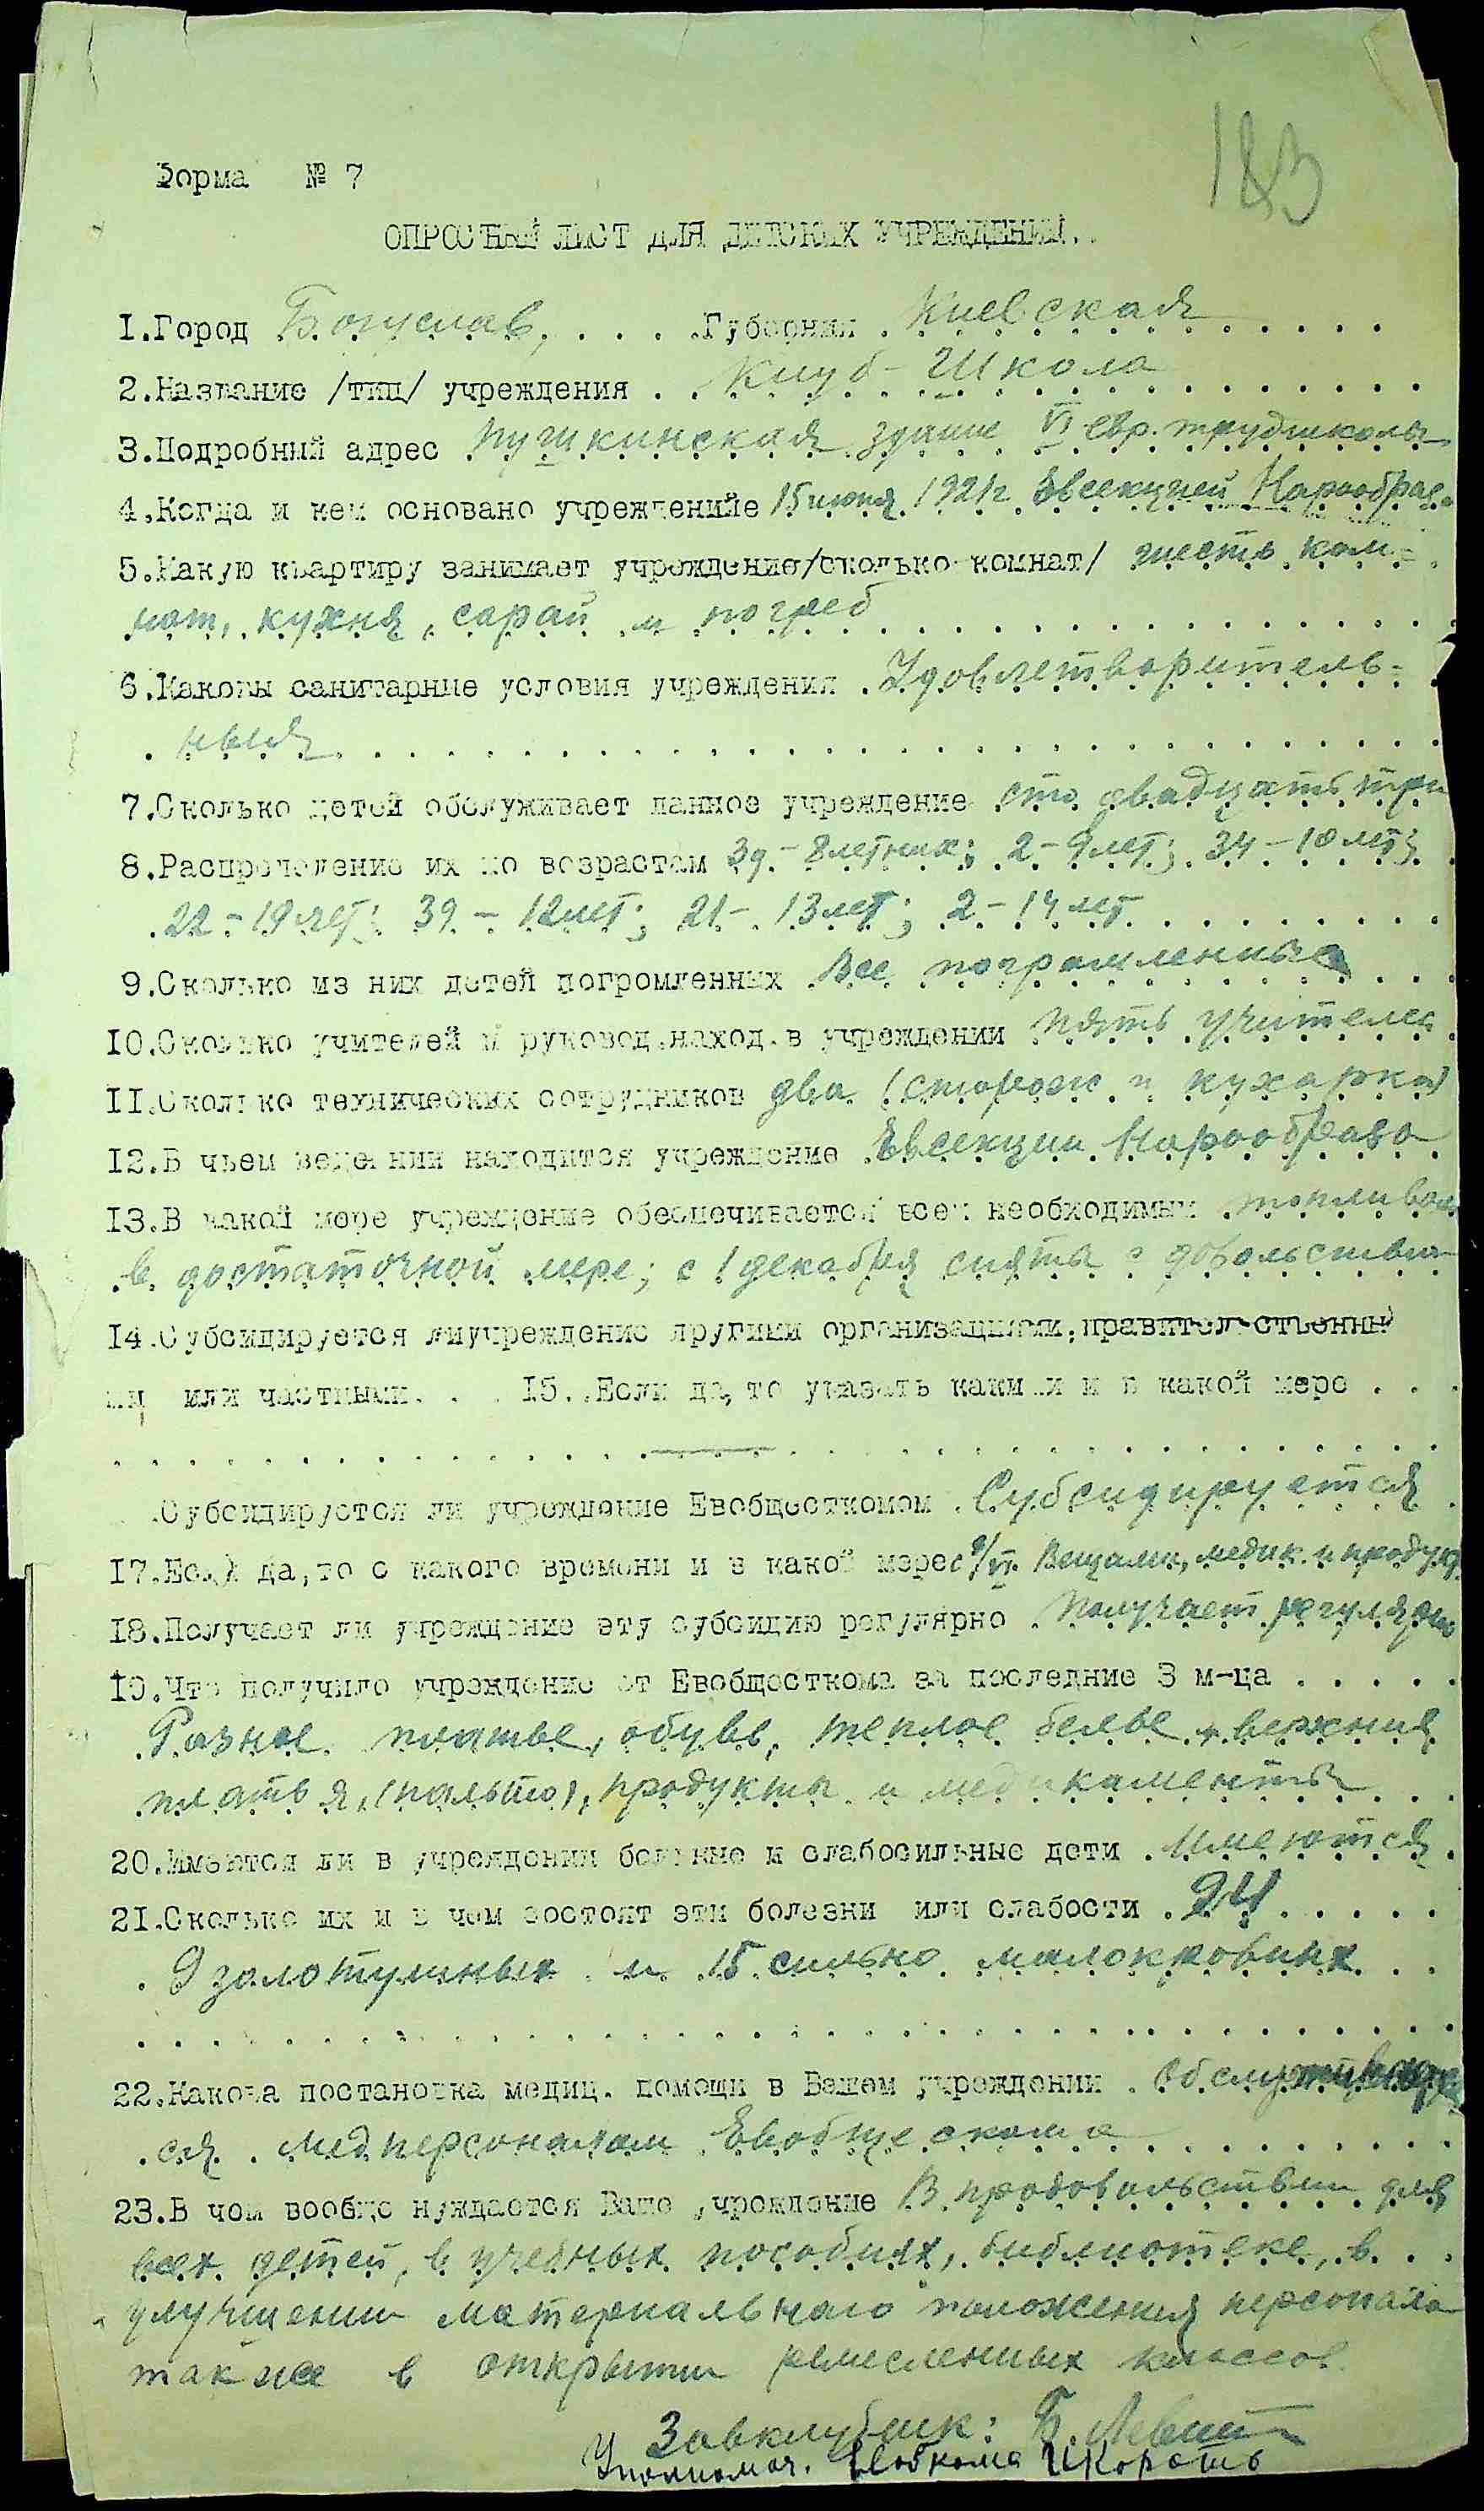 183
Форма № 7
ОПРОСНЫЙ ЛИСТ ДЛЯ ДЕТСКИХ УЧРЕЖДЕНИЙ.
1.Город Богуслав, . . . .Губерния . Киевская
2.Название /тип/ учреждения . . Клуб-Школа
3.Подробный адрес Пушкинская здание VI евр. трудшколы
4.Когда и кем основано учрежденийе 15 июня 1921г. Евсекцией Нарообраза
5.Какую квартиру занимает учреждение/сколько комнат/ шесть ком-
нат, кухня, сарай и погреб
6.Каковы санитарные условия учреждения . Удовлетворитель-
ныя
7.Сколько детей обслуживает данное учреждение сто двадцать три
8.Распределение их по возрастам 3д.-8летних; 2-9лет; 34-10лет;
22-19лет; 39-12лет; 21-13лет; 2-14лет
9.Сколько из них детей погромленных Все погромленные
10.Сколько учителей и руковод.наход.в учреждении пять учителей
11.Сколько технических сотрудников два (сторож и кухарка)
12.В чьем ведении находится учреждение Евсекции Нарообраза
13.В какой мере учреждение обеспечивается всем необходимым топливом
в достаточной мере; с 1 декабря сняты с довольствия
14.Субсидируется лиучреждение другими организациями,правительственны
ми или частными. . . 15. .Если да,то указать какими и в какой мере . . .
.Субсидируется ли учреждение Евобщесткомом . Субсидируется
17.Если да,то с какого времени и в какой мере с 9/VI. Вещами, медик. и продук.
18.Получает ли учреждение эту субсидию регулярно . Получает регулярно
19.Что получило учреждение от Евобщесткома за последние 3 м-ца . . . . .
Разное платье, обувь, теплое белье и верхния
платья, (пальто), продукты и медикаменты
20.Имеются ли в учреждении больные и слабосильные дети . Имеются .
21.Сколько их и в чем состоят эти болезни или слабости . 24 . . . . .
9 золотушных и 15 сильно малокровных
22.Какова постановка медиц. помощи в Вашем учреждении . Обслуживает
ся . медперсоналом Евобщескома
23.В чем вообще нуждается Ваше учреждение В продовольствии для
всех детей, в учебных пособиях, библиотеке, в . .
улучшении материальнаго положения персонала
также в открытии ремесленных классов.
Завклубшк: Б. Левит
Уполномоч. Евобкома ИКорость